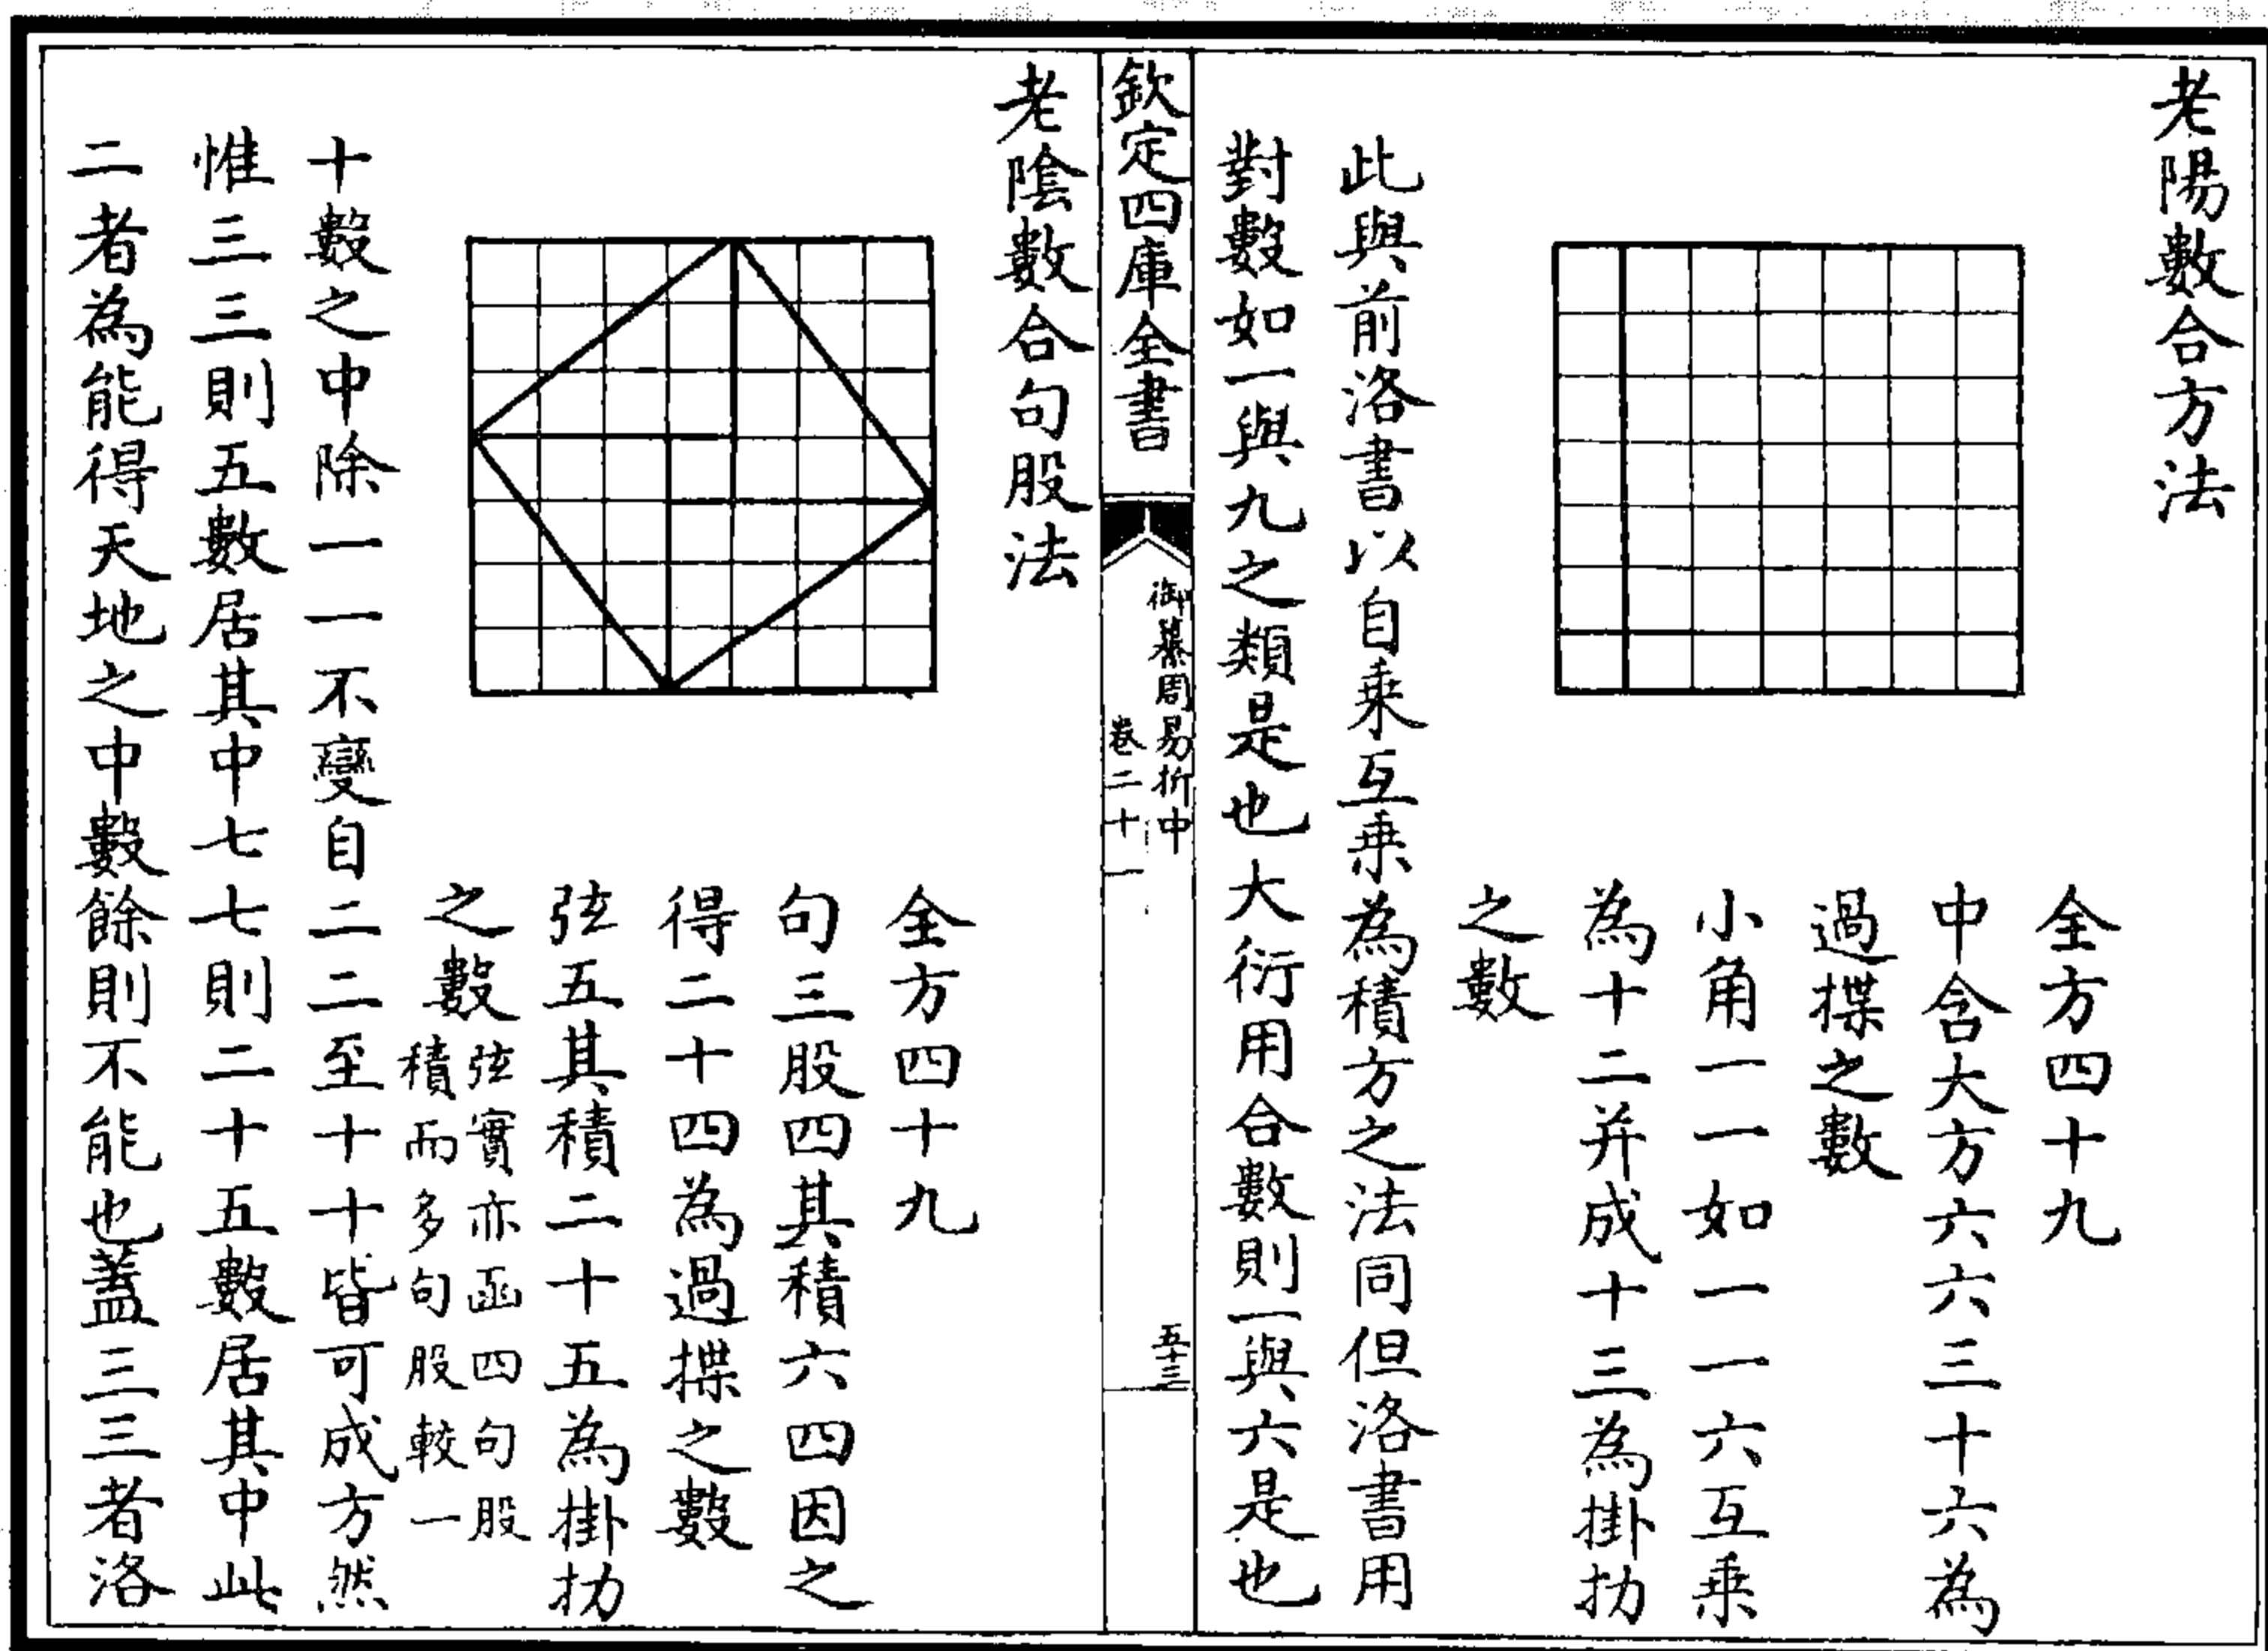 老陽數合方法
全方四十九
中含大方六六三十六為
過揲之數
小角一一如一一六互乘
為十二并成十三為掛扐
之數
此與前洛書以自乘互乘為積方之法同但洛書用
對數如一與九之類是也大衍用合數則一與六是也
欽定四庫全書
御纂周易折中
卷二十一
五十三
老陰數合句股法
全方四十九
句三股四其積六四因之
得二十四為過揲之數
弦五其積二十五為掛扐
之數
弦實亦函四句股
積而多句股較一
十數之中除一一不變自二二至十十皆可成方然
惟三三則五數居其中七七則二十五數居其中此
二者為能得天地之中數餘則不能也蓋三三者洛